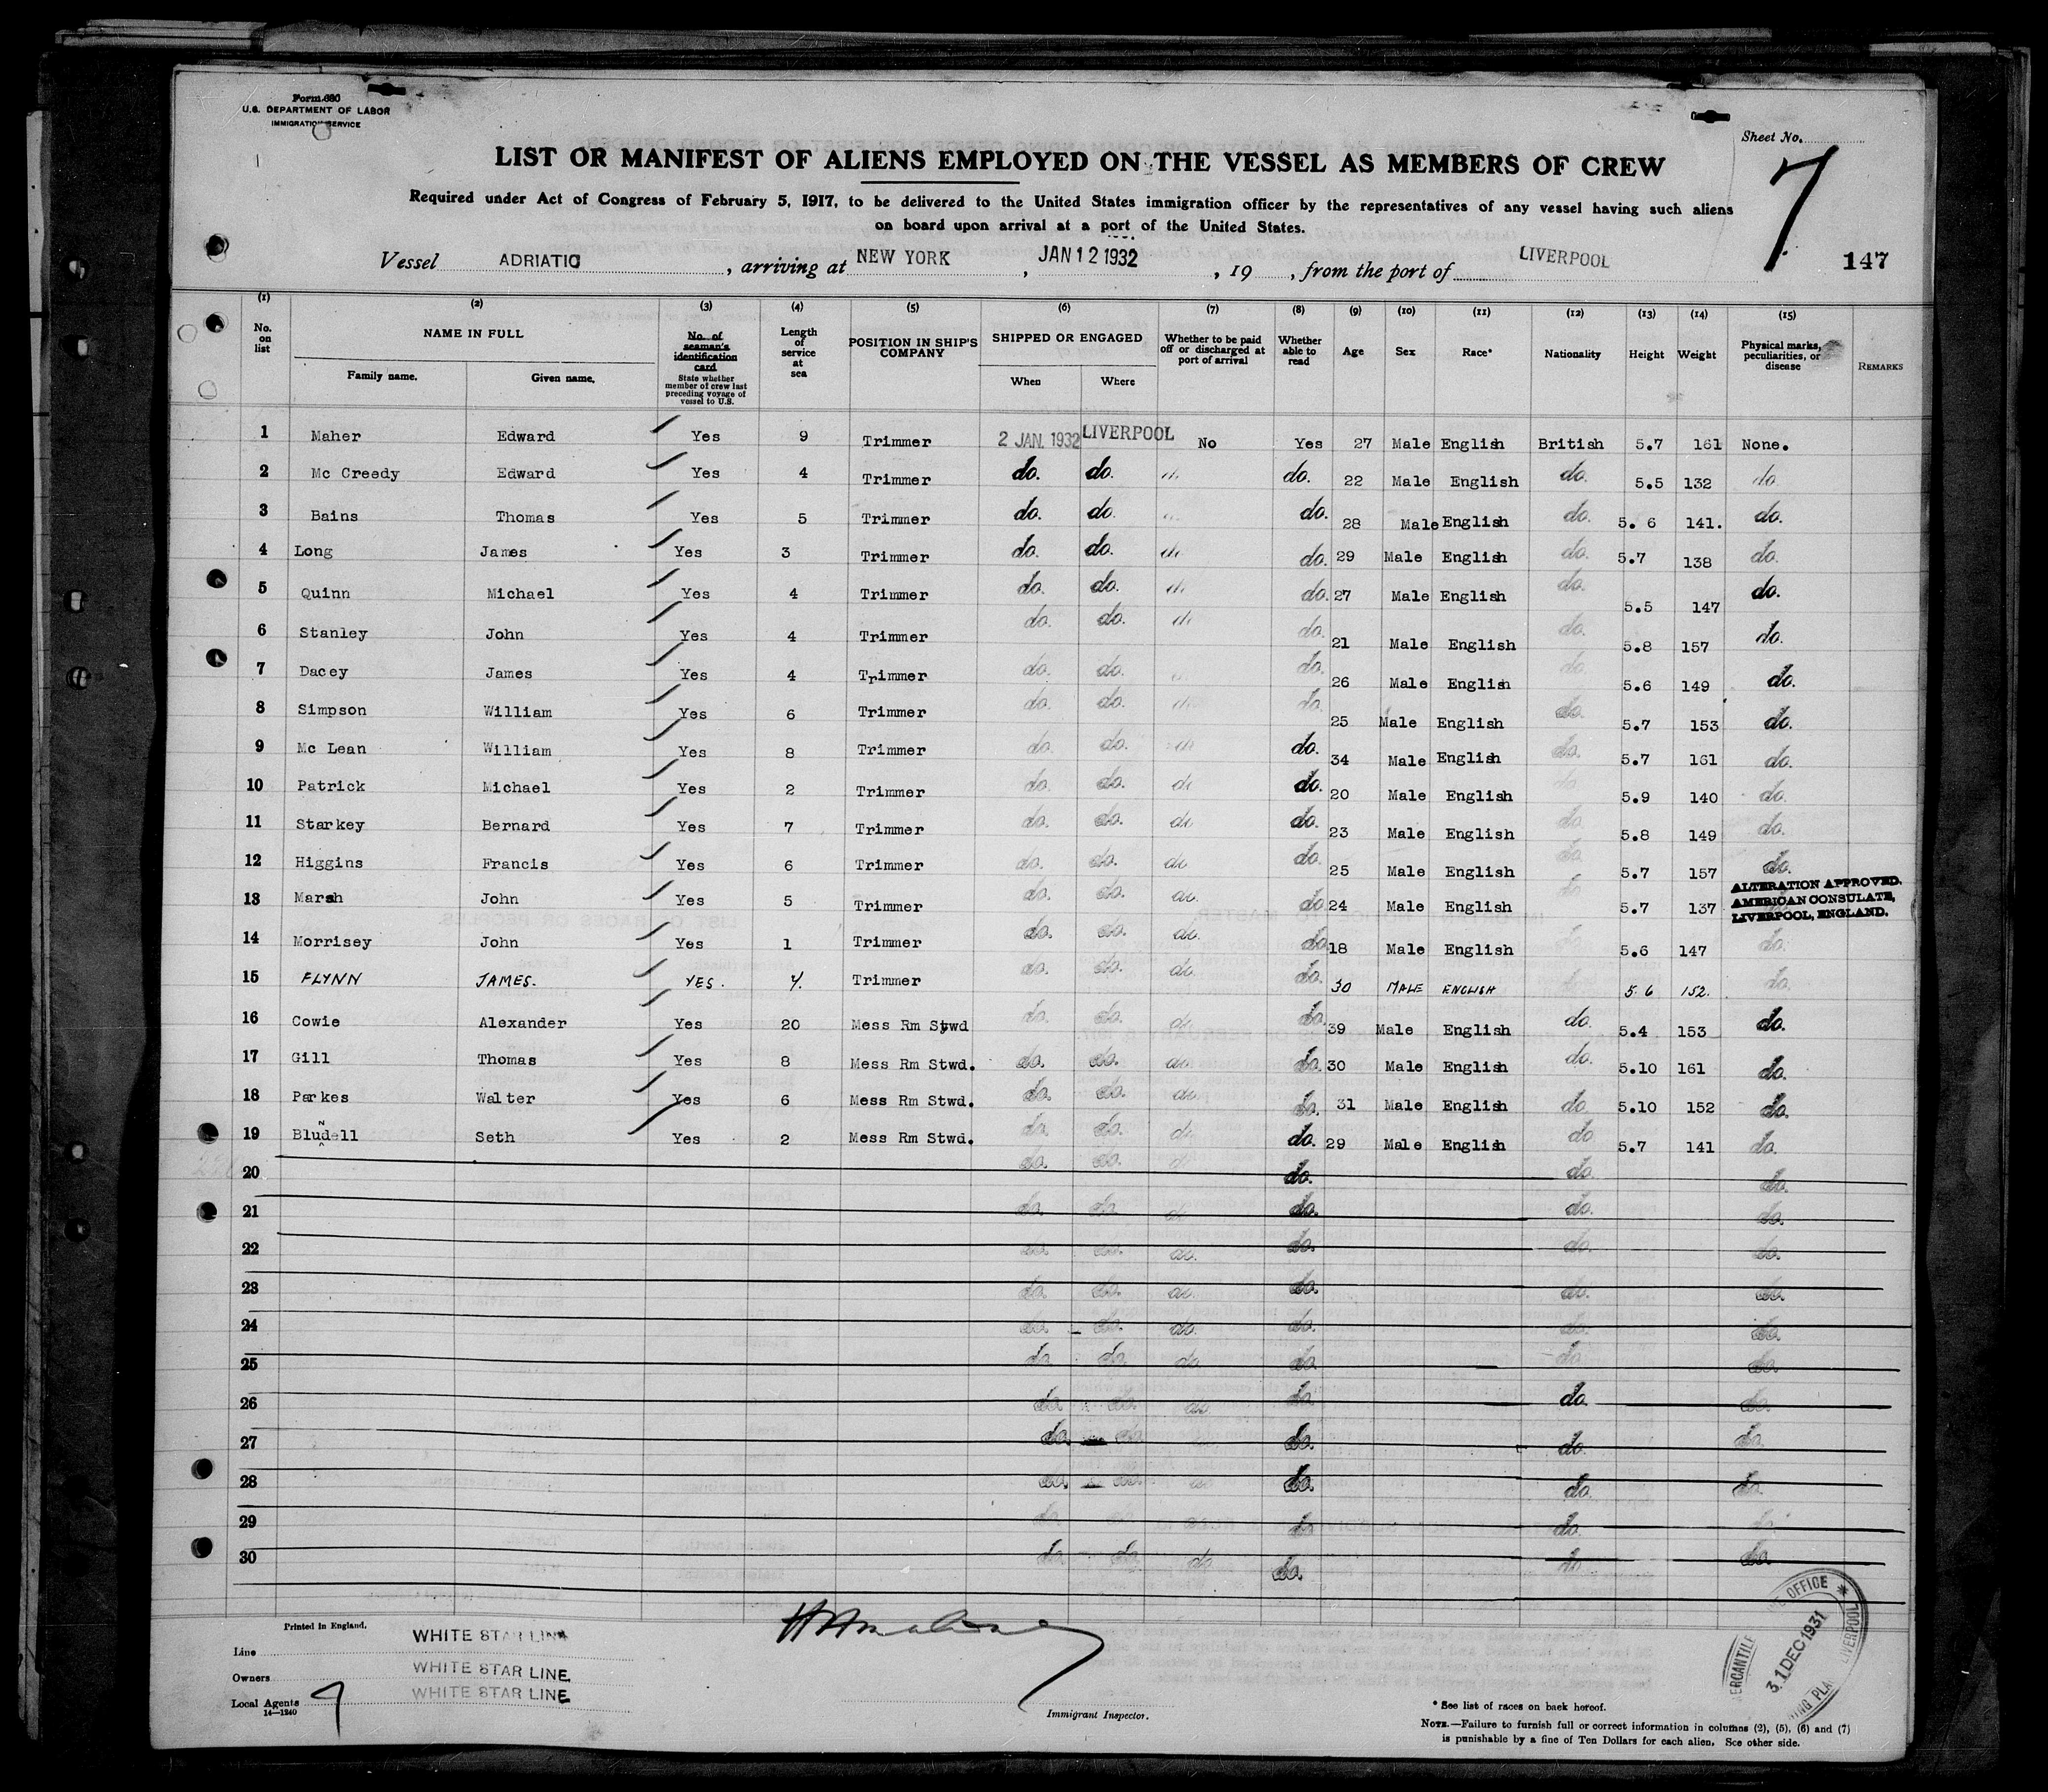 Form 680
U.S. DEPARTMENT OF LABOR
IMMIGRATION SERVICE
Sheet No.
7
LIST OR MANIFEST OF ALIENS EMPLOYED ON THE VESSEL AS MEMBERS OF CREW
Required under Act of Congress of February 5, 1917, to be delivered to the United States immigration officer by the representatives of any vessel having such aliens
on board upon arrival at a port of the United States.
Vessel ADRIATIC, arriving at NEW YORK, JAN 12 1932, 19 , from the port of LIVERPOOL 147
(1) (2) (3) (4) (5) (6) (7) (8) (9) (10) (11) (12) (13) (14) (15)
No. on list NAME IN FULL Family name. Given name. No. of seaman's identification card State whether member of crew last preceding voyage of vessel to U.S. Length of service at sea POSITION IN SHIP'S COMPANY SHIPPED OR ENGAGED When Where Whether to be paid off or discharged at port of arrival Whether able to read Age Sex Race* Nationality Height Weight Physical marks, peculiarities, or disease REMARKS
1 Maher Edward Yes 9 Trimmer 2 JAN. 1932 LIVERPOOL No Yes 27 Male English British 5.7 161 None.
2 Mc Creedy Edward Yes 4 Trimmer do. do. do. do. 22 Male English do. 5.5 132 do
3 Bains Thomas Yes 5 Trimmer do. do. do. 28 Male English do. 5. 6 141. do.
4 Long James Yes 3 Trimmer do. do. do do. 29 Male English do. 5.7 138 do.
5 Quinn Michael Yes 4 Trimmer do. do. do do. 27 Male English do. 5.5 147 do.
6 Stanley John Yes 4 Trimmer do. do. do do. 21 Male English do. 5.8 157 do.
7 Dacey James Yes 4 Trimmer do. do. do. 26 Male English do. 5.6 149 do.
8 Simpson William Yes 6 Trimmer do. do. do do. 25 Male English do. 5.7 153 do.
9 Mc Lean William Yes 8 Trimmer do. do. do do. 34 Male English do. 5.7 161 do.
10 Patrick Michael Yes 2 Trimmer do. do. do do. 20 Male English do 5.9 140 do.
11 Starkey Bernard Yes 7 Trimmer do. do. do do. 23 Male English do. 5.8 149 do.
12 Higgins Francis Yes 6 Trimmer do. do. do do. 25 Male English do. 5.7 157 do.
13 Marsh John Yes 5 Trimmer do. do. do. do 24 Male English do 5.7 137
ALTERATION APPROVED.
AMERICAN CONSULATE,
LIVERPOOL, ENGLAND.
14 Morrisey John Yes 1 Trimmer do. do. do. do. 18 Male English 5.6 147 do.
15 FLYNN JAMES. YES. 4. Trimmer do. do. do. do. 30 MALE ENGLISH 5.6 152. do.
16 Cowie Alexander Yes 20 Mess Rm Stwd do. do. do. do. 39 Male English do. 5.4 153 do.
17 Gill Thomas Yes 8 Mess Rm Stwd. do. do. do. do. 30 Male English do. 5.10 161 do.
18 Parkes Walter Yes 6 Mess Rm Stwd. do. do. do. do. 31 Male English do 5.10 152 do.
19 Blundell Seth Yes 2 Mess Rm Stwd. do. do. do. do. 29 Male English do 5.7 141 do.
20 do. do. do. do. do. do.
21 do. do. do. do. do. do.
22 do. do. do. do. do. do.
23 do. do. do. do. do. do.
24 do. do. do. do. do. do.
25 do. do. do. do. do. do.
26 do. do. do. do. do. do.
27 do. do. do. do. do.
28 do. do. do. do. do. do.
29 do. do. do.
30 do. do. do. do. do. do.
Printed in England.
Line WHITE STAR LINE
Owners WHITE STAR LINE
Local Agents WHITE STAR LINE
14—1240
9
Immigrant Inspector.
MERCANTILE OFFICE LIVERPOOL
31 DEC 1931
* See list of races on back hereof.
NOTE.—Failure to furnish full or correct information in columns (2), (5), (6) and (7)
is punishable by a fine of Ten Dollars for each alien. See other side.